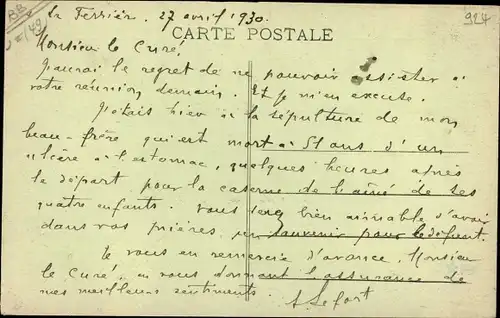 La Ferrière. 27 avril 1930.
924
CARTE POSTALE
Monsieur le Curé
J'aurai le regret de ne pouvoir assister à
votre réunion demain. Et je m'en excuse.
J'étais hier à la sépulture de mon
beau-frère qui est mort à 51 ans d'un
ulcère à l'estomac, quelques heures après
le départ pour la caserne de l'aîné de ses
quatre enfants. Vous serez bien aimable d'avoir
dans vos prières un souvenir pour le défunt.
Je vous en remercie d'avance, Monsieur
le Curé, en vous donnant l'assurance de
mes meilleurs sentiments.
A Lefort